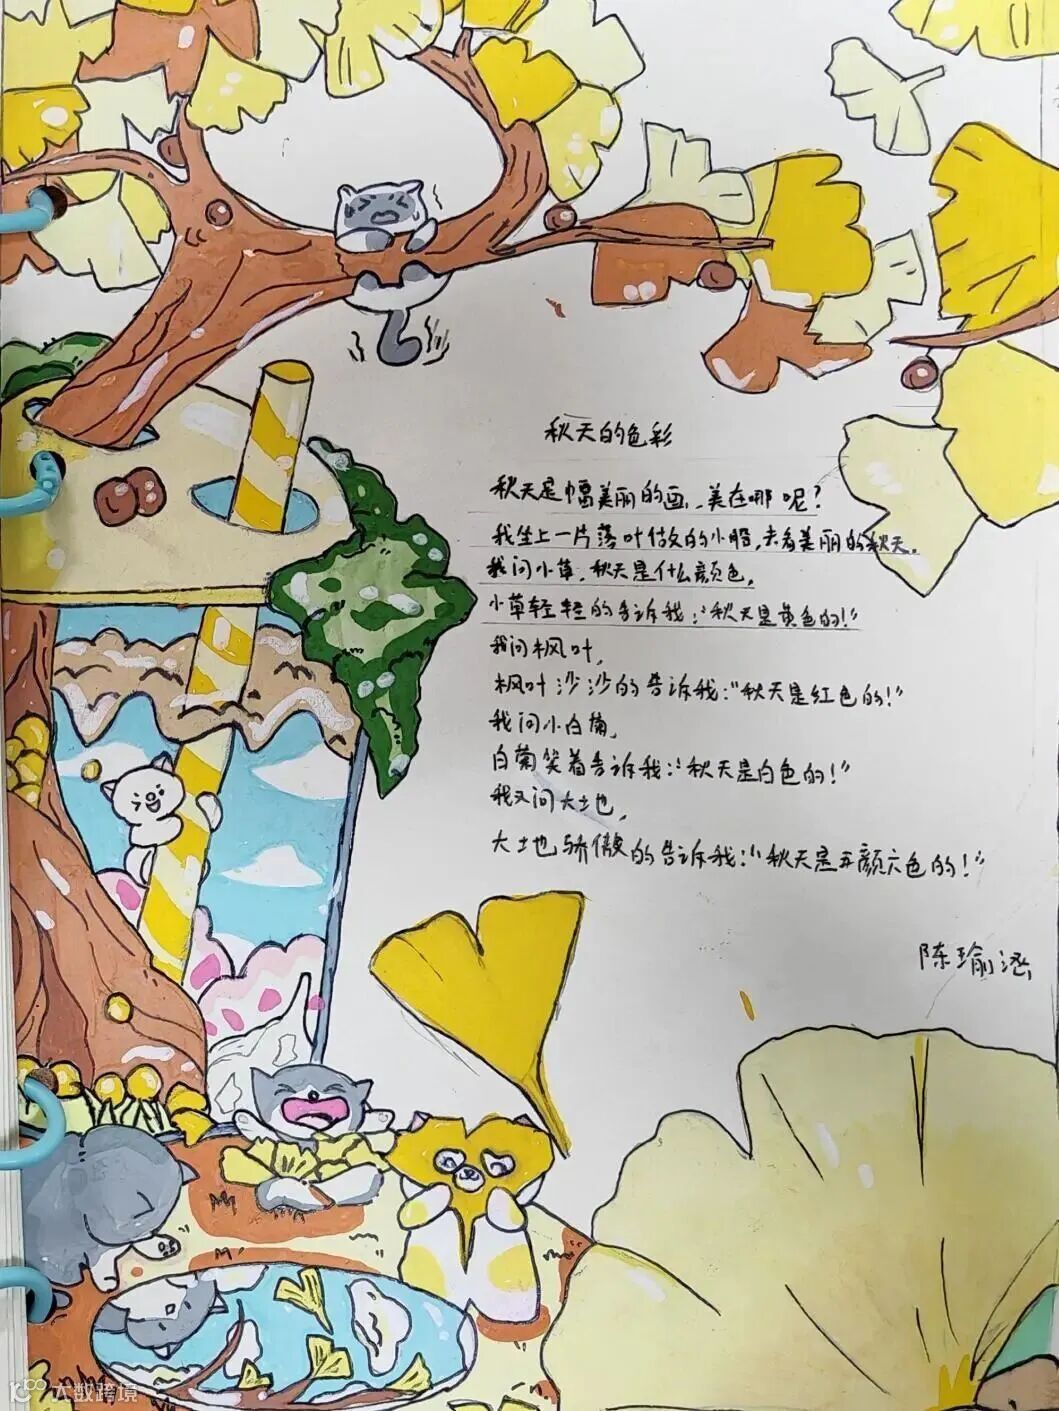 秋天的色彩
秋天是幅美丽的画，美在哪呢？
我坐上一片落叶做的小船，去看美丽的秋天。
我问小草，秋天是什么颜色，
小草轻轻的告诉我：“秋天是黄色的！”
我问枫叶，
枫叶沙沙的告诉我：“秋天是红色的！”
我问小白菊，
白菊笑着告诉我：“秋天是白色的！”
我又问大土地，
大土地骄傲的告诉我：“秋天是五颜六色的！”
陈瑜
大数跨境